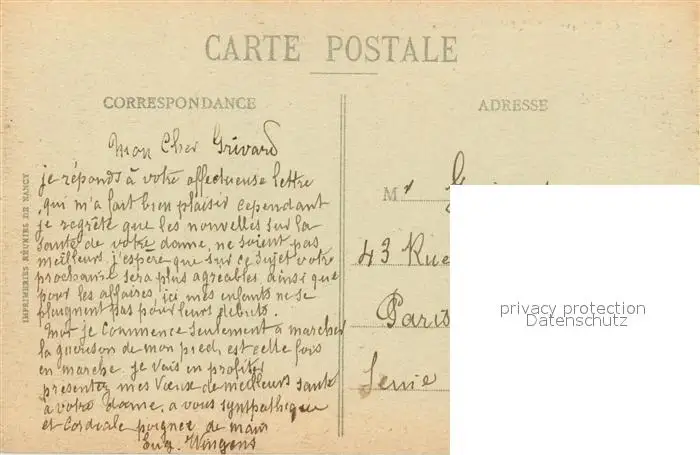 CARTE POSTALE
CORRESPONDANCE
ADRESSE
IMPRIMERIES RÉUNIES DE NANCY
Mon Cher Grivard
je réponds à votre affectueuse lettre
qui m'a fait bien plaisir cependant
je regrète que les nouvelles sur la
santé de votre dame, ne soient pas
meilleurs, j'espère que sur ce sujet votre
prochaine sera plus agréables, ainsi que
pour les affaires, ici mes enfants ne se
plaignent pas pour leurs débuts.
Moi je commence seulement à marcher
la guérison de mon pied, est cette fois
en marche. je vais en profiter
présenter mes vœux de meilleurs santé
à votre dame, a vous sympathique
et cordiale poignée de main
Eug. Wingens
M r
43 Rue
Paris
Seine
privacy protection
Datenschutz